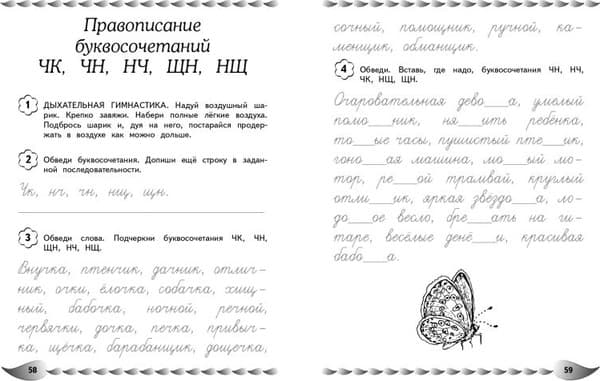 Правописание
буквосочетаний
ЧК, ЧН, НЧ, ЩН, НЩ
1 ДЫХАТЕЛЬНАЯ ГИМНАСТИКА. Надуй воздушный ша-
рик. Крепко завяжи. Набери полные лёгкие воздуха.
Подбрось шарик и, дуя на него, постарайся продер-
жать в воздухе как можно дольше.
2 Обведи буквосочетания. Допиши ещё строку в задан-
ной последовательности.
Чк, нч, чн, нщ, щн.
3 Обведи слова. Подчеркни буквосочетания ЧК, ЧН,
ЩН, НЧ, НЩ.
Внучка, птенчик, дачник, отлич-
ник, очки, ёлочка, собачка, хищ-
ный, бабочка, ночной, речной,
червячки, дочка, печка, привыч-
ка, щёчка, барабанщик, дощечка,
58
сочный, помощник, ручной, ка-
менщик, обманщик.
4 Обведи. Вставь, где надо, буквосочетания ЧН, НЧ,
ЧК, НЩ, ЩН.
Очаровательная дево__а, умелый
помо__ник, ня__ить ребёнка,
то__ые часы, пушистый пте__ик,
гоно__ая машина, мо__ый мо-
тор, ре__ой трамвай, круглый
отли__ик, яркая звёздо__а, ло-
до__ое весло, бре__ать на ги-
таре, весёлые денё__и, красивая
бабо__а.
59